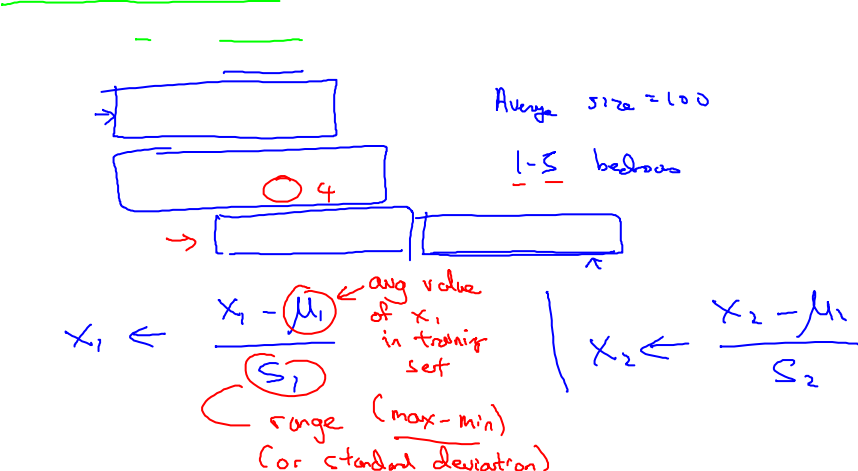 Average size = 100
1-5 bedrooms
4
x₁ ← (x₁ - μ₁) / S₁
avg value
of x₁
in training
set
x₂ ← (x₂ - μ₂) / S₂
range (max-min)
(or standard deviation)